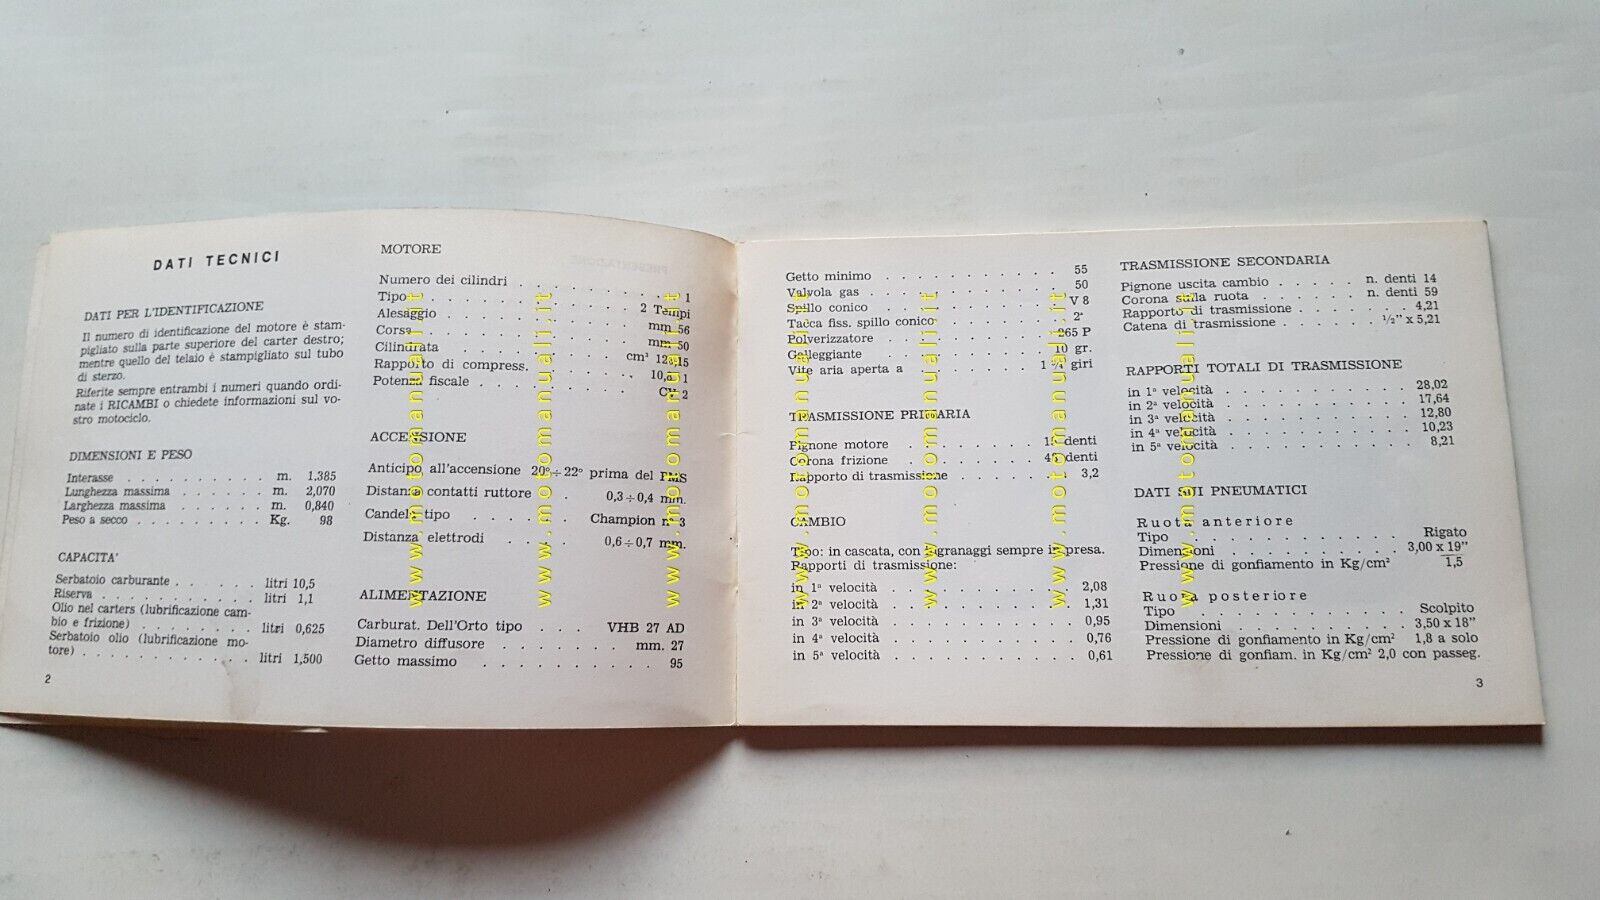 DATI TECNICI
DATI PER L'IDENTIFICAZIONE
Il numero di identificazione del motore è stam-
pigliato sulla parte superiore del carter destro;
mentre quello del telaio è stampigliato sul tubo
di sterzo.
Riferite sempre entrambi i numeri quando ordi-
nate i RICAMBI o chiedete informazioni sul vo-
stro motociclo.
DIMENSIONI E PESO
Interasse . . . . . . . . . m. 1,385
Lunghezza massima . . . . . . m. 2,070
Larghezza massima . . . . . . m. 0,840
Peso a secco . . . . . . . . . Kg. 98
CAPACITA'
Serbatoio carburante . . . . . litri 10,5
Riserva . . . . . . . . . . litri 1,1
Olio nel carters (lubrificazione cam-
bio e frizione) . . . . . . . . litri 0,625
Serbatoio olio (lubrificazione mo-
tore) . . . . . . . . . . . litri 1,500
2
MOTORE
Numero dei cilindri . . . . . . . . 1
Tipo . . . . . . . . . . 2 Tempi
Alesaggio . . . . . . . . . mm 56
Corsa . . . . . . . . . . mm 50
Cilindrata . . . . . . . cm³
Rapporto di compress. . . . . . 1
Potenza fiscale . . . . . . . CV 2
ACCENSIONE
Anticipo all'accensione 20°÷22° prima del PMS
Distanza contatti ruttore . . 0,3÷0,4 mm.
Candela tipo . . . . . . Champion n° 3
Distanza elettrodi . . . . 0,6÷0,7 mm.
ALIMENTAZIONE
Carburat. Dell'Orto tipo . . . VHB 27 AD
Diametro diffusore . . . . . . . mm. 27
Getto massimo . . . . . . . . . 95
Getto minimo . . . . . . . . . . 55
Valvola gas . . . . . . . . . . . 50
Spillo conico . . . . . . . . . . V 8
Tacca fiss. spillo conico . . . . . . . 2ª
Polverizzatore . . . . . . . . . 265 P
Galleggiante . . . . . . . . . 10 gr.
Vite aria aperta a . . . . . . 1 ¼ giri
TRASMISSIONE PRIMARIA
Pignone motore . . . . . . . denti
Corona frizione . . . . . . . denti
Rapporto di trasmissione . . . . . . 3,2
CAMBIO
Tipo: in cascata, con ingranaggi sempre in presa.
Rapporti di trasmissione:
in 1ª velocità . . . . . . . . . . 2,08
in 2ª velocità . . . . . . . . . . 1,31
in 3ª velocità . . . . . . . . . . 0,95
in 4ª velocità . . . . . . . . . . 0,76
in 5ª velocità . . . . . . . . . . 0,61
TRASMISSIONE SECONDARIA
Pignone uscita cambio . . . . . n. denti 14
Corona sulla ruota . . . . . . n. denti 59
Rapporto di trasmissione . . . . . . 4,21
Catena di trasmissione . . . . . ½" x 5,21
RAPPORTI TOTALI DI TRASMISSIONE
in 1ª velocità . . . . . . . . . . 28,02
in 2ª velocità . . . . . . . . . . 17,64
in 3ª velocità . . . . . . . . . . 12,80
in 4ª velocità . . . . . . . . . . 10,23
in 5ª velocità . . . . . . . . . . 8,21
DATI SUI PNEUMATICI
Ruota anteriore
Tipo . . . . . . . . . . . . Rigato
Dimensioni . . . . . . . . . 3,00 x 19"
Pressione di gonfiamento in Kg/cm² . . 1,5
Ruota posteriore
Tipo . . . . . . . . . . . . Scolpito
Dimensioni . . . . . . . . . 3,50 x 18"
Pressione di gonfiamento in Kg/cm² 1,8 a solo
Pressione di gonfiam. in Kg/cm² 2,0 con passeg.
3
www.motomanuali.it
www.motomanuali.it
www.motomanuali.it
www.motomanuali.it
www.motomanuali.it
www.motomanuali.it
www.motomanuali.it